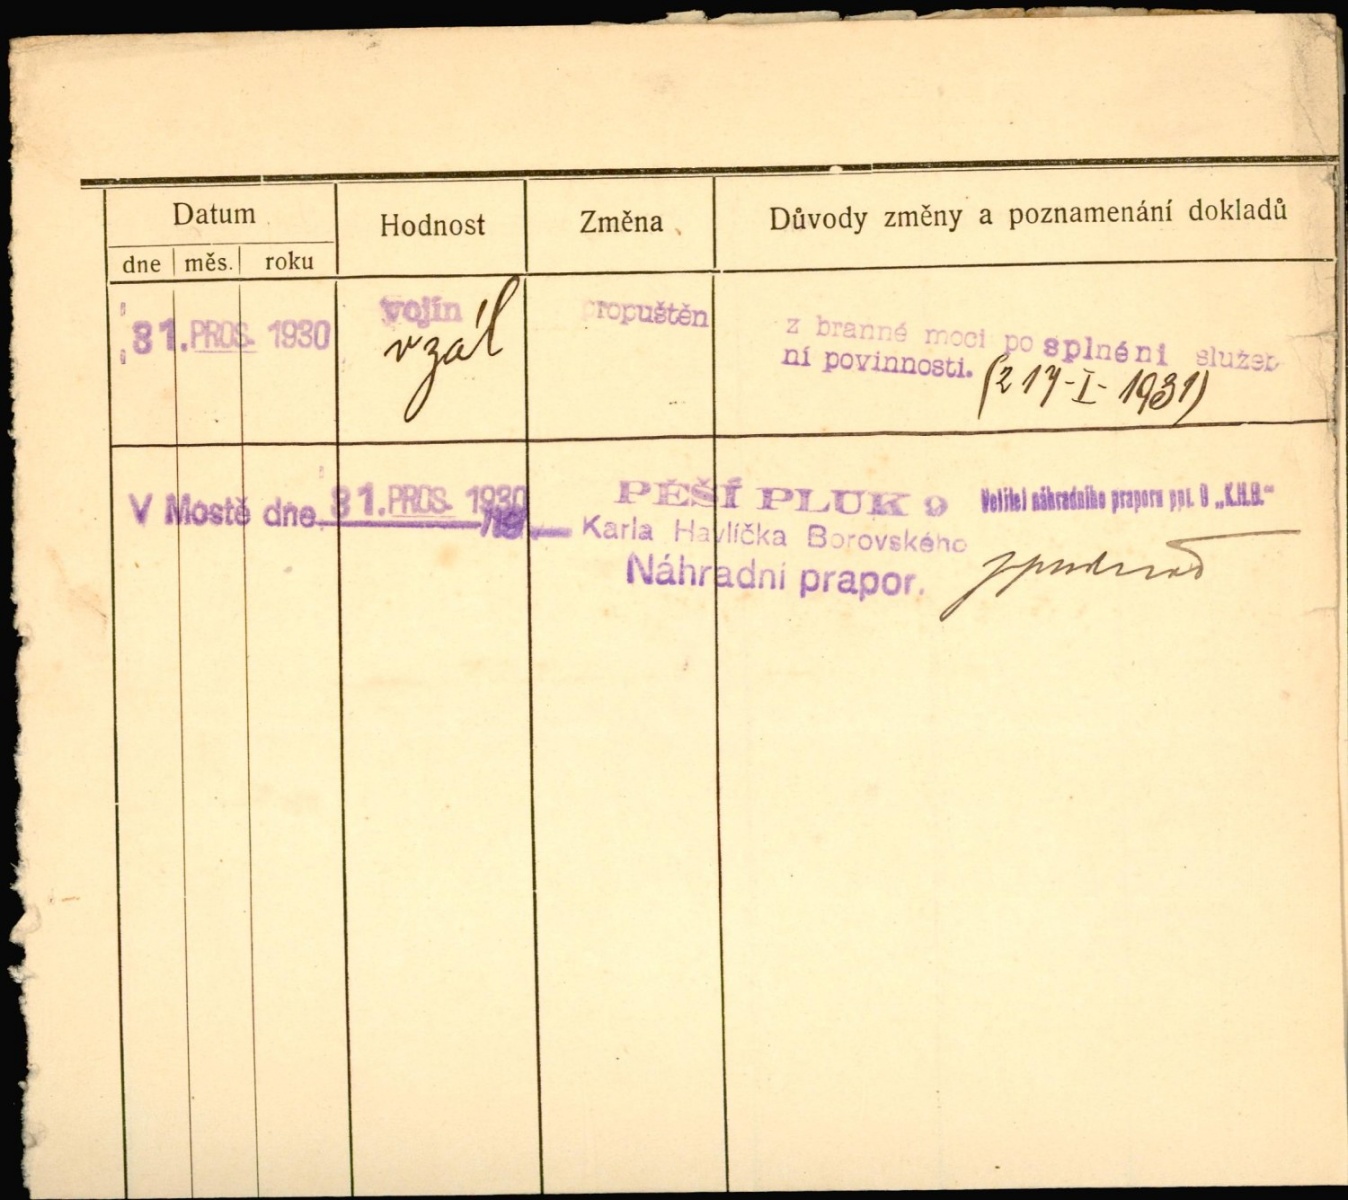 Datum Hodnost Změna Důvody změny a poznamenání dokladů
dne měs. roku
31. PROS. 1930 vojín propuštěn z branné moci po splnéni služeb
v zál ní povinnosti. (2 17-I-1931)
V Mostě dne 31. PROS. 1930 PĚŠÍ PLUK 9 Velitel náhradního praporu pp. 9 „K.H.B.“
Karla Havlíčka Borovského
Náhradní prapor.